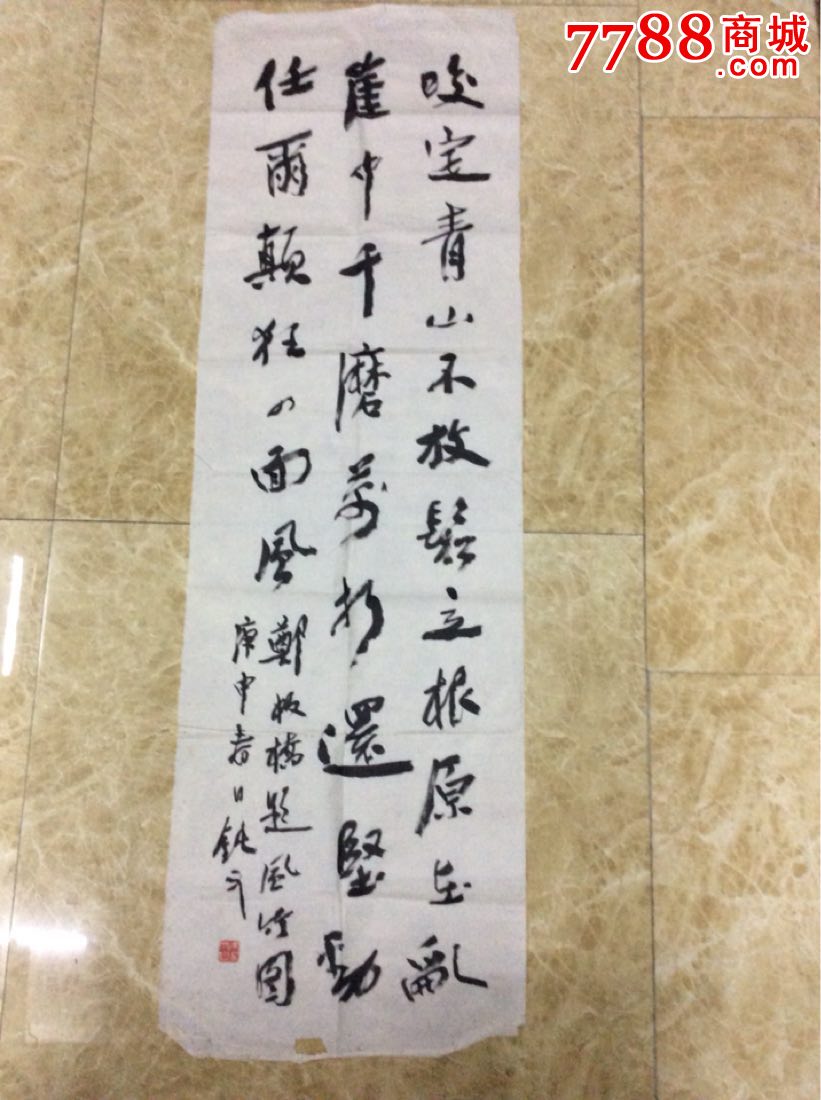 7788商城
.com
咬定青山不放鬆立根原在亂
崖中千磨萬折還堅勁
任爾顛狂四面風
鄭板橋題風竹圖
庚申春日